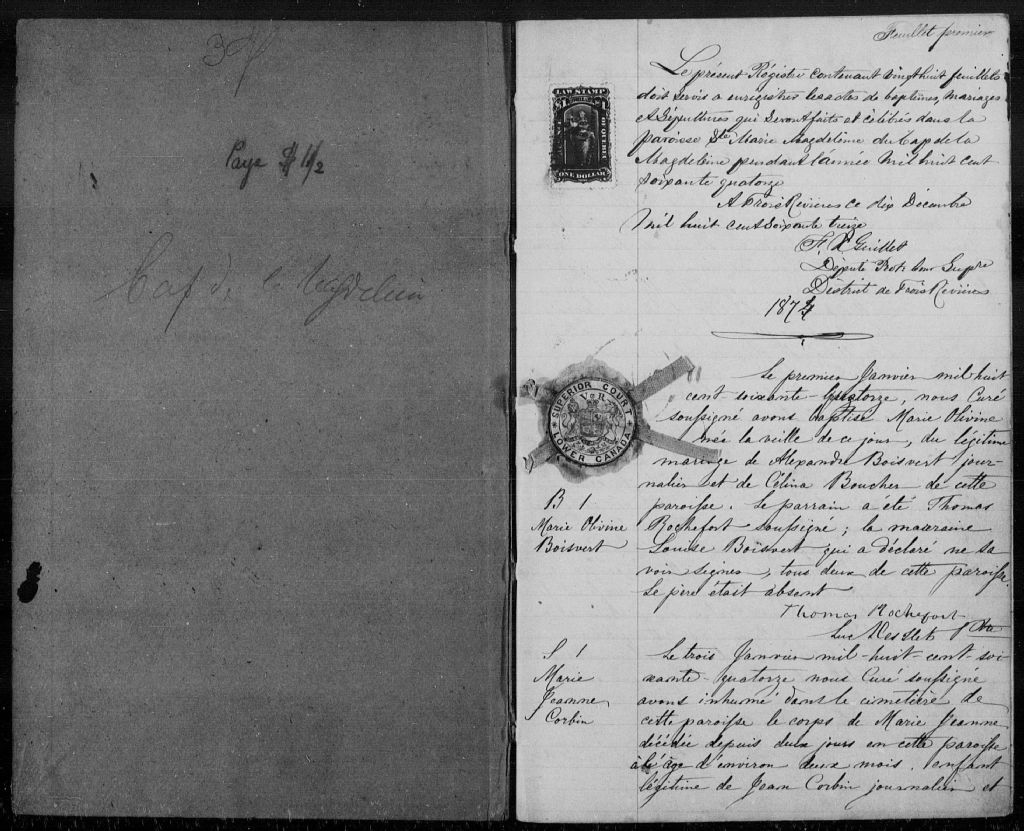 Paye $ 1 1/2
Cap de la Magdelein
Feuillet premier
Le présent Régistre contenant vingthuit feuillets
doit servir a enregistrer les actes de baptêmes, mariages
et Sépultures qui seront faits et célébrés dans la
paroisse Ste Marie Magdeleine du Cap de la
Magdeleine pendant l'année Mil huit cent
soixante quatorze
A Trois Rivières ce dix Décembre
Mil huit cent soixante treize
F. X Guillet
Député Prot. Cour Supre
District de Trois Rivières
1874
LAW STAMP
OF QUEBEC
ONE DOLLAR
SUPERIOR COURT
V R
LOWER CANADA
B 1
Marie Olivine
Boisvert
Le premier Janvier mil huit
cent soixante-quatorze, nous Curé
soussigné avons baptisé Marie Olivine
née la veille de ce jour, du légitime
mariage de Alexandre Boisvert jour-
nalier et de Célina Boucher de cette
paroisse. Le parrain a été Thomas
Rochefort soussigné; la marraine
Louise Boisvert qui a déclaré ne sa
voir signer, tous deux de cette paroisse.
Le père était absent
Thomas Rochefort
Luc Ptre
S 1
Marie
Jeanne
Corbin
Le trois Janvier mil-huit-cent-soi
xante-quatorze nous Curé soussigné
avons inhumé dans le cimetière de
cette paroisse le corps de Marie Jeanne
décédée depuis deux jours en cette paroisse
à l'âge d'environ deux mois, enfant
légitime de Jean Corbin journalier et